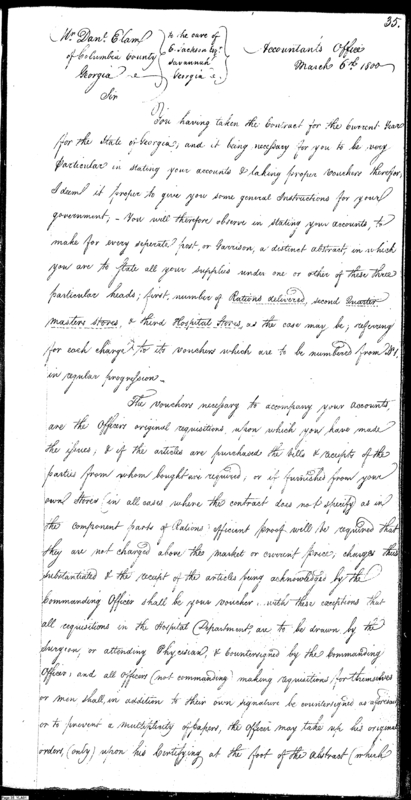 35.
Mr. Danl. Elam
of Columbia County
Georgia
to the care of
E. Jackson Esqr.
Savannah
Georgia
Accountant's Office
March 6th 1800
Sir
You having taken the Contract for the Current Year
for the State of Georgia, and it being necessary for you to be very
particular in stating your accounts & taking proper vouchers therefor,
I deem it proper to give you some general Instructions for your
government; - You will therefore observe in stating your accounts, to
make for every seperate post, or Garrison, a distinct abstract, in which
you are to state all your supplies under one or other of these three
particular heads; first, number of Rations delivered, second Quarter
masters stores, & third Hospital Stores, as the case may be; referring
for each charge to its vouchers which are to be numbered from No. 1,
in regular progression -
The vouchers necessary to accompany your accounts,
are the Officers original requisitions, upon which you have made
the issues, & if the articles are purchased the bills & receipts of the
parties from whom bought are required, or if furnished from your
own Stores (in all cases where the contract does not specify as in
the component parts of Rations) efficient proof will be required that
they are not charged above the market or current price, charges thus
substantiated & the receipt of the articles being acknowledged by the
Commanding Officer shall be your voucher.. with these exceptions that
all requisitions in the Hospital Department, are to be drawn by the
Surgeon, or attending Physician, & Countersigned by the Commanding
Officer; and all officers (not commanding) making requisitions, for themselves
or men shall, in addition to their own signature be countersigned as aforesaid,
or to prevent a multiplicity of papers, the Officer may take up his original
orders, (only) upon his Certifying at the foot of the abstract (which